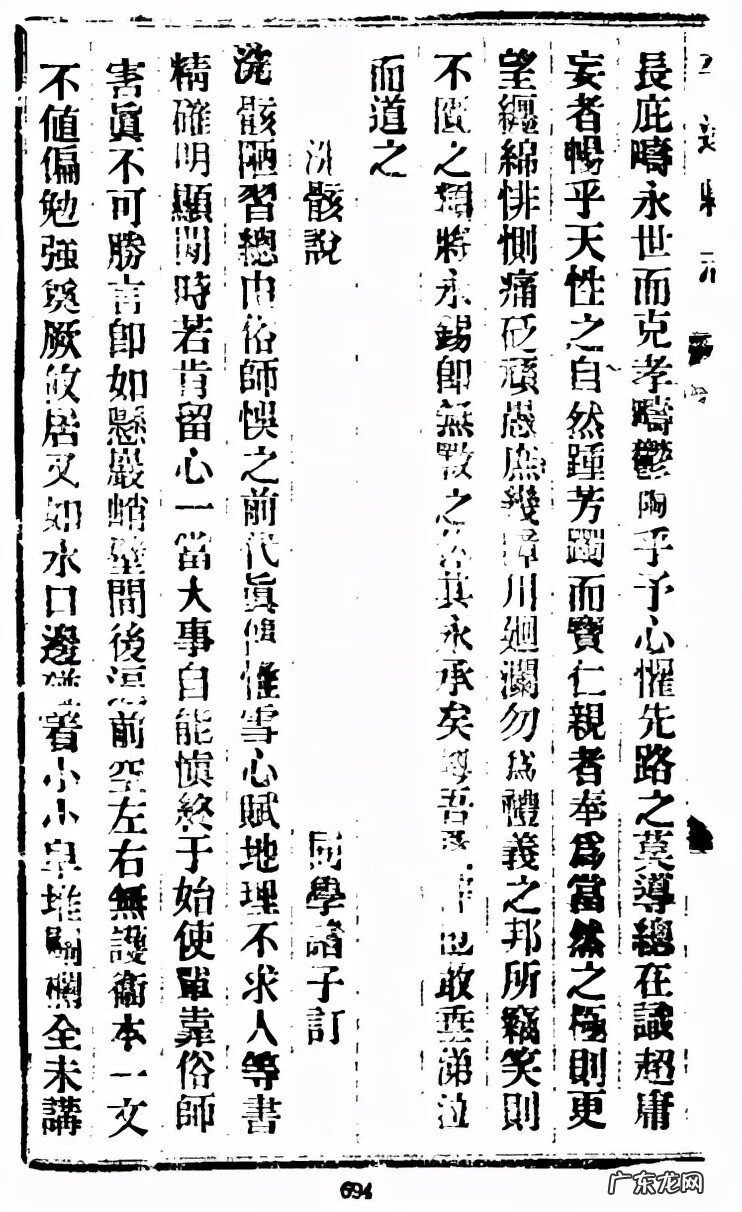 長庇疇永世而克孝疇鬱陶乎予心懼先路之莫導總在識超庸
妄者暢乎天性之自然踵芳躅而寶仁親者奉爲當然之極則更
望纏綿悱惻痛砭頑愚庶幾障川廻瀾勿爲禮義之邦所竊笑則
不匱之類將永錫卽無斁之其永承矣吾也敢垂涕泣
而道之
洗骸說
同學諸子訂
洗骸陋習總由俗師悞之前代眞僞惟雪心賦地理不求人等書
精確明顯閒時若肯留心一當大事自能愼終于始使單靠俗師
害眞不可勝言卽如懸巖峭壁間後逼前空左右無護衞本一文
不値偏勉强奠厥攸居又如水口邊看小小阜堆羅欄全未講
694
广东龙网